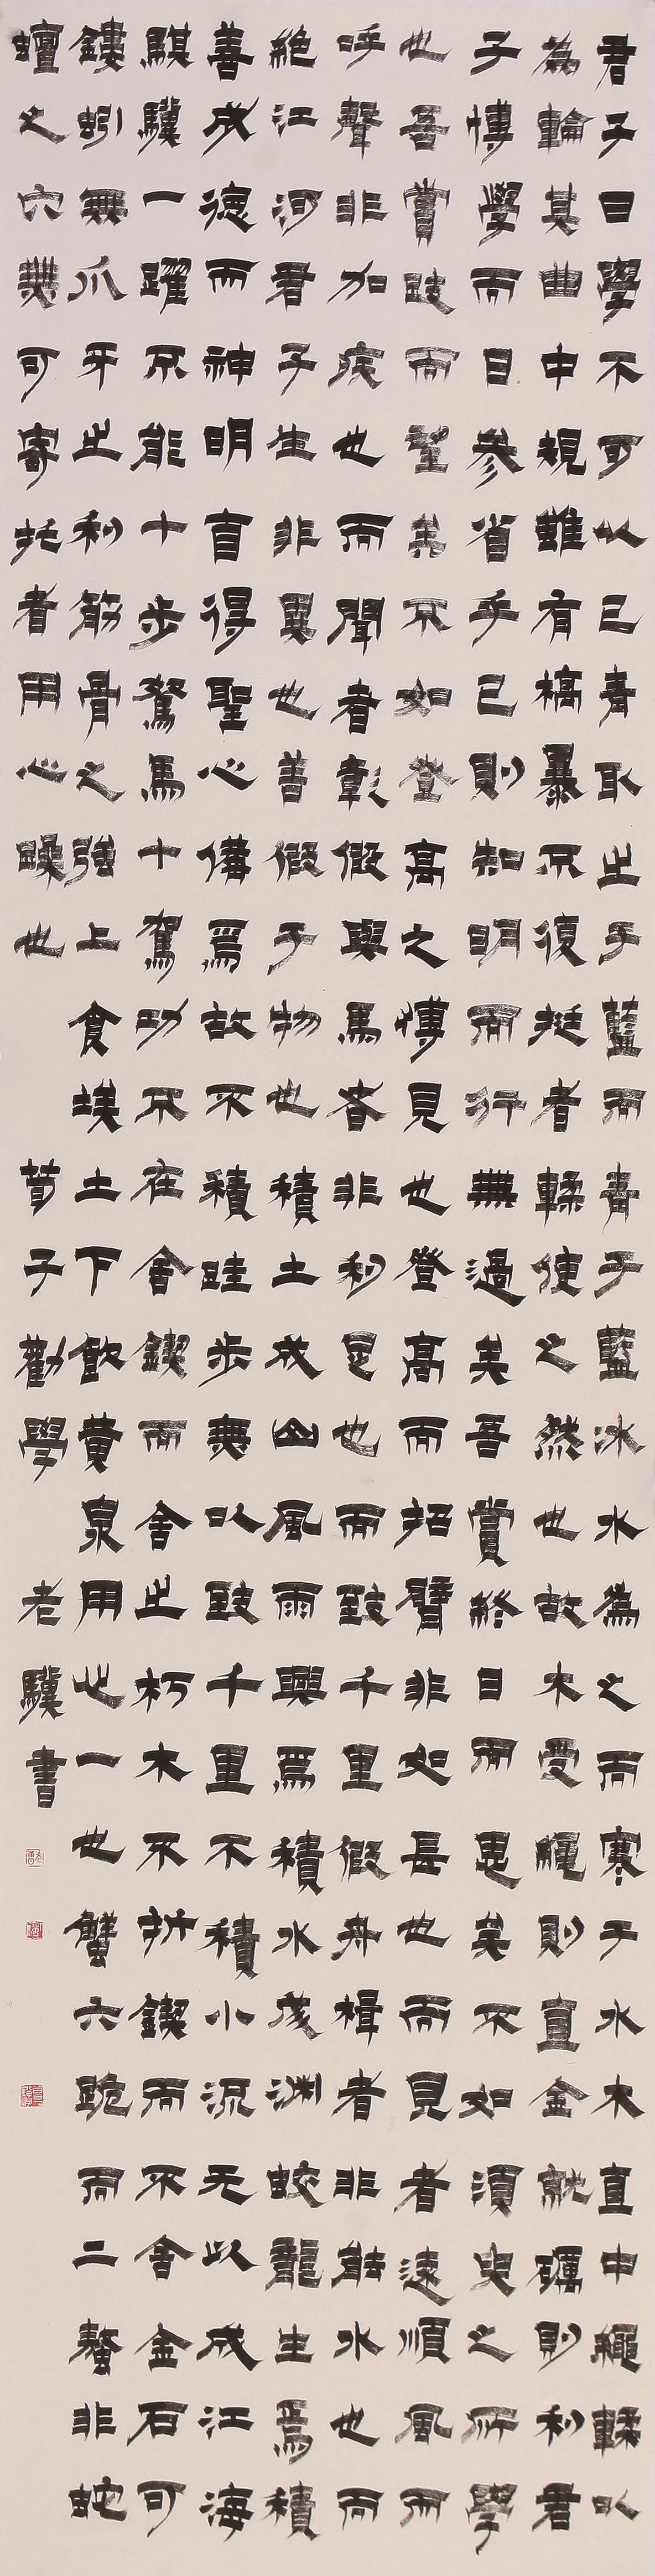 君子曰學不可以已青取之于藍而青于藍冰水為之而寒于水木直中繩輮以
為輪其曲中規雖有槁暴不復挺者輮使之然也故木受繩則直金就礪則利君
子博學而日參省乎己則知明而行無過矣吾嘗終日而思矣不如須臾之所學
也吾嘗跂而望矣不如登高之博見也登高而招臂非如長也而見者遠順風而
呼聲非加疾也而聞者彰假輿馬者非利足也而致千里假舟楫者非能水也而
絕江河君子生非異也善假于物也積土成山風雨興焉積水成淵蛟龍生焉積
善成德而神明自得聖心備焉故不積跬步無以致千里不積小流无以成江海
騏驥一躍不能十步駑馬十駕功不在舍鍥而舍之朽木不折鍥而不舍金石可
鏤蚓無爪牙之利筋骨之強上食埃土下飲黃泉用心一也蟹六跪而二螯非蛇
蟺之穴無可寄托者用心躁也 荀子勸學 老驥書